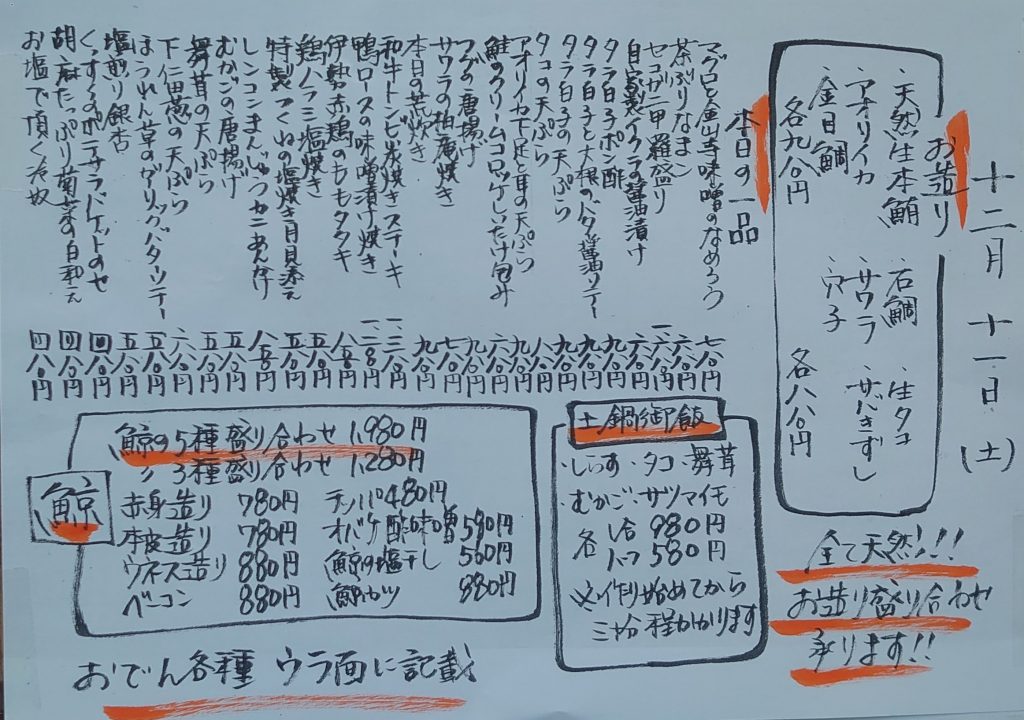 十二月十一日(土)
お造り
・天然生本鮪 ・石鯛 ・生タコ
・アオリイカ ・サワラ ・サバきずし
・金目鯛 ・穴子
各九八〇円 各八八〇円
全て天然!!!
お造り盛り合わせ
承ります!!
本日の一品
マグロと金山寺味噌のなめろう 七八〇円
茶ぶりなまこ 六八〇円
セコガニ甲羅盛り
自家製イクラの醤油漬け 六八〇円
タラ白子ポン酢
タラ白子と大根のバター醤油ソテー
タラ白子の天ぷら
タコの天ぷら 八八〇円
アオリイカ下足と耳の天ぷら 九八〇円
鮭のクリームコロッケしいたけ包み 九八〇円
フグの唐揚げ 九八〇円
サワラの柚庵焼き
本日の荒炊き 七八〇円
和牛トンビ炭焼きステーキ
鴨ロースの味噌漬け焼き
伊勢赤鶏のももタタキ 八八〇円
鶏ハラミ塩焼き 五八〇円
特製つくねの塩焼き月見添え 五八〇円
レンコンまんじゅうカニあんかけ 八八〇円
むかごの唐揚げ 五八〇円
舞茸の天ぷら 五八〇円
下仁田葱の天ぷら 六八〇円
ほうれん草のガーリックバターソテー 五八〇円
塩煎り銀杏 五八〇円
くんすくのポテサラバケットのせ 四八〇円
胡麻たっぷり菊菜の白和え 四八〇円
お塩で頂く冷奴 四八〇円
土鍋御飯
・しらす・タコ・舞茸
・むかご・サツマイモ
各 1合 980円
ハーフ 580円
※作り始めてから
三十分程かかります
鯨
鯨の5種盛り合わせ 1,980円
〃 3種盛り合わせ 1,280円
赤身造り 780円
本皮造り 780円
ウネス造り 880円
ベーコン 880円
チップ 480円
オバケ酢味噌 580円
鯨の塩干し 580円
鯨カツ 880円
おでん各種 ウラ面に記載